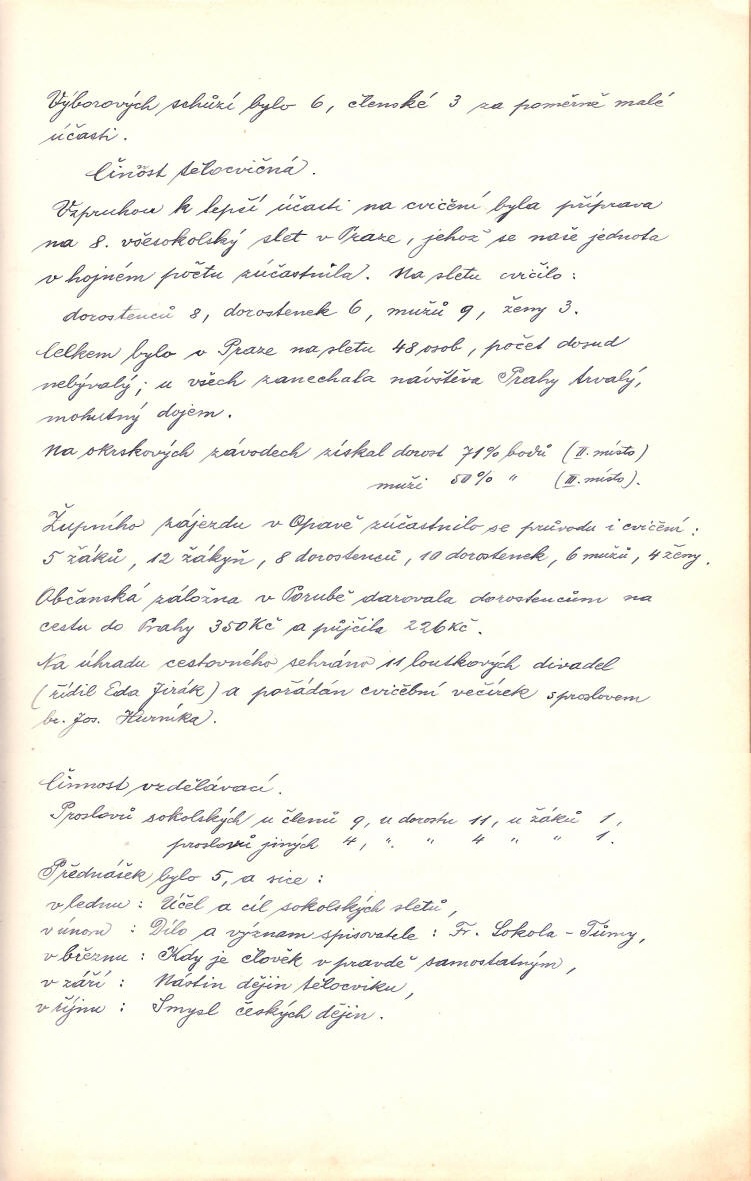 Výborových schůzí bylo 6, členské 3 za poměrně malé
účasti.
Činost tělocvičná.
Vzpruhou k lepší účasti na cvičení byla příprava
na 8. všesokolský slet v Praze, jehož se naše jednota
v hojném počtu zúčastnila. Na sletu cvičilo:
dorostenců 8, dorostenek 6, mužů 9, ženy 3.
Celkem bylo v Praze na sletu 48 osob, počet dosud
nebývalý; u všech zanechala návštěva Prahy trvalý,
mohutný dojem.
Na okrskových závodech získal dorost 71% bodů (II. místo)
muži 50% " (III. místo).
Župního zájezdu v Opavě zúčastnilo se průvodu i cvičení:
5 žáků, 12 žákyň, 8 dorostenců, 10 dorostenek, 6 mužů, 4 ženy.
Občanská záložna v Porubě darovala dorostencům na
cestu do Prahy 350 Kč a půjčila 226 Kč.
Na úhradu cestovného sehráno 11 loutkových divadel
(řídil Eda Jirák) a pořádán cvičební večírek s proslovem
br. Jos. Hurníka.
Činnost vzdělávací.
Proslovů sokolských u členů 9, u dorostu 11, u žáků 1,
proslovů jiných 4, " " 4 " " 1.
Přednášek bylo 5, a sice:
v lednu : Účel a cíl sokolských sletů,
v únoru : Dílo a význam spisovatele : Fr. Sokola - Tůmy,
v březnu : Kdy je člověk v pravdě samostatným,
v září : Nástin dějin tělocviku,
v říjnu : Smysl českých dějin.